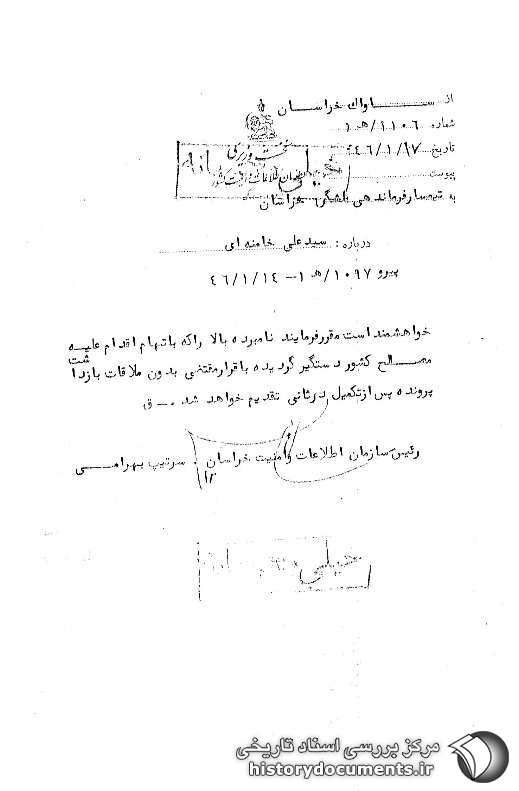 از ساواک خراسان
شماره ۱۱۰۶/هـ۱
تاریخ ۴۶/۱/
پیوست
نخست وزیری
سازمان اطلاعات و امنیت کشور
خیلی
به تیمسار فرماندهی لشگر خراسان
درباره : سید علی خامنه ای
پیرو ۱۰۹۷/هـ۱ – ۴۶/۱/۱۴
خواهشمند است مقرر فرمایند نامبرده بالا را که باتهام اقدام علیه
مصالح کشور دستگیر گردیده با قرار مقتضی بدون ملاقات بازداشت
پرونده پس از تکمیل در ثانی تقدیم خواهد شد . – ق
رئیس سازمان اطلاعات و امنیت خراسان . سرتیپ بهرامی
خیلی
مرکز بررسی اسناد تاریخی
historydocuments.ir